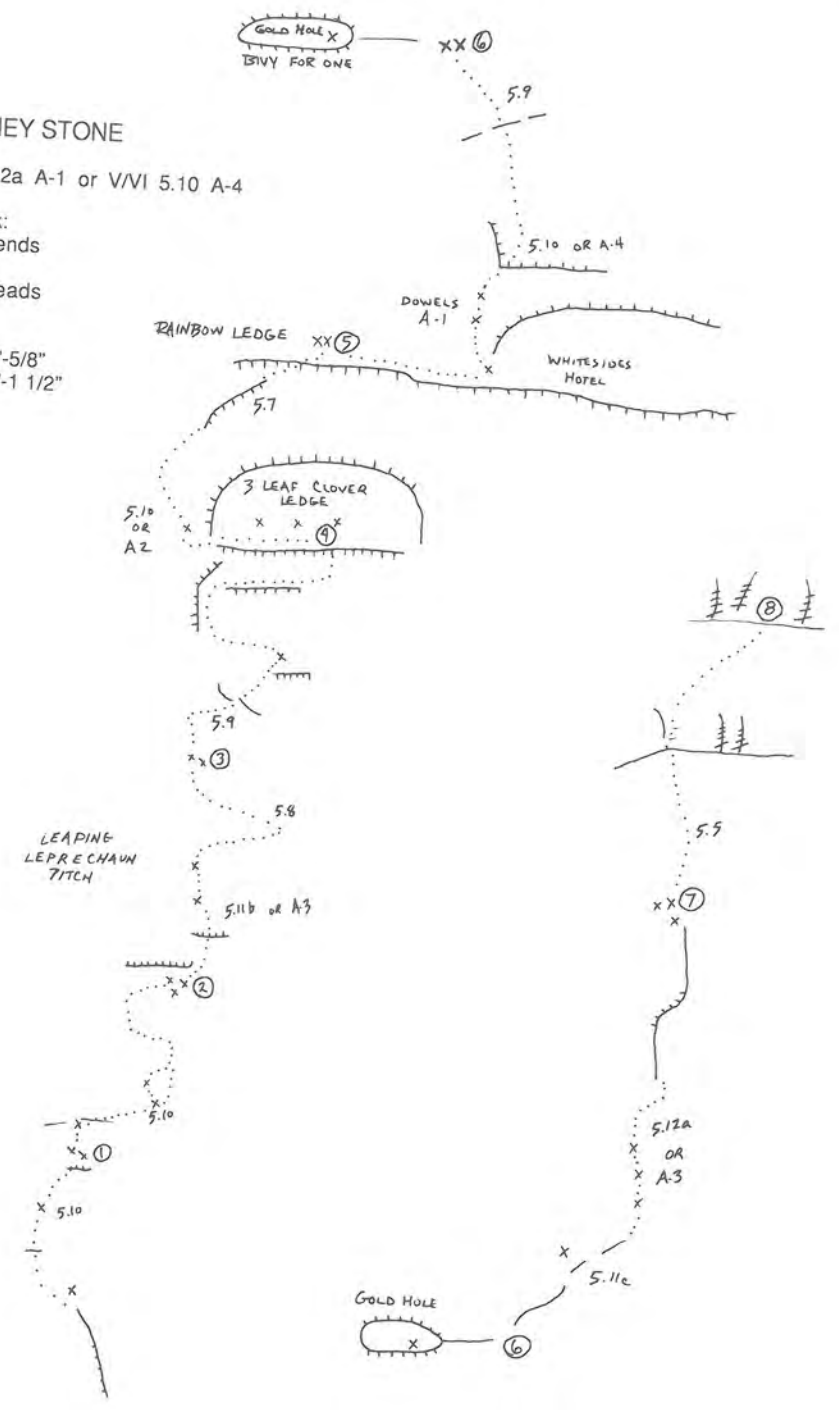 GOLD HOLE X
BIVY FOR ONE
XX ⑥
5.9
EY STONE
2a A-1 or V/VI 5.10 A-4
ends
eads
-5/8"
-1 1/2"
5.10 OR A-4
DOWELS
A-1
RAINBOW LEDGE
XX ⑤
WHITESIDES
HOTEL
5.7
3 LEAF CLOVER
LEDGE
X X X
④
5.10
OR
A2
X
X
5.9
X X ③
5.8
LEAPING
LEPRECHAUN
PITCH
5.11b OR A-3
②
5.10
①
5.10
⑧
5.5
X X ⑦
X
5.12a
OR
A-3
5.11c
GOLD HOLE
X
⑥